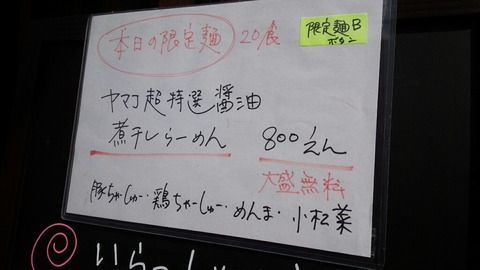 本日の限定麺 20食
限定麺B
ボタン
ヤマコ超特選醤油
煮干しらーめん 800えん
大盛無料
豚ちゃーしゅー・鶏ちゃーしゅー・めんま・小松菜